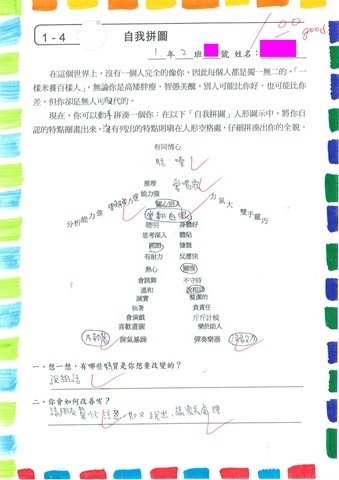 100
good
1-4 自我拼圖
1年2班 號 姓名:
在這個世界上，沒有一個人完全的像你，因此每個人都是獨一無二的。「一
樣米養百樣人」，無論你是高矮胖瘦、智愚美醜，別人可能比你好，也可能比你
差，但你卻是無人可取代的。
現在，你可以動手拼湊一個你：在以下「自我拼圖」人形圖示中，將你自
認的特點圈畫出來，沒有列出的特點則填在人形空格處，仔細拼湊出你的全貌。
有同情心
推理 愛唱歌
能力強
關心別人
分析能力強 力氣大 雙手靈巧
愛翹自
聰明 身體好
思考深入 體貼
開朗 慷慨
有耐力 反應快
熱心 關懷
會跳舞 不守時
溫和 說粗話
誠實 整潔的
執著 負責任
會演戲 斤斤計較
喜歡畫圖 樂於助人
脾氣暴躁 彈奏樂器
一、想一想，有哪些特質是你想要改變的？
說粗話
二、你會如何改善呢？
請朋友幫忙注意，如又說出，請家長處理